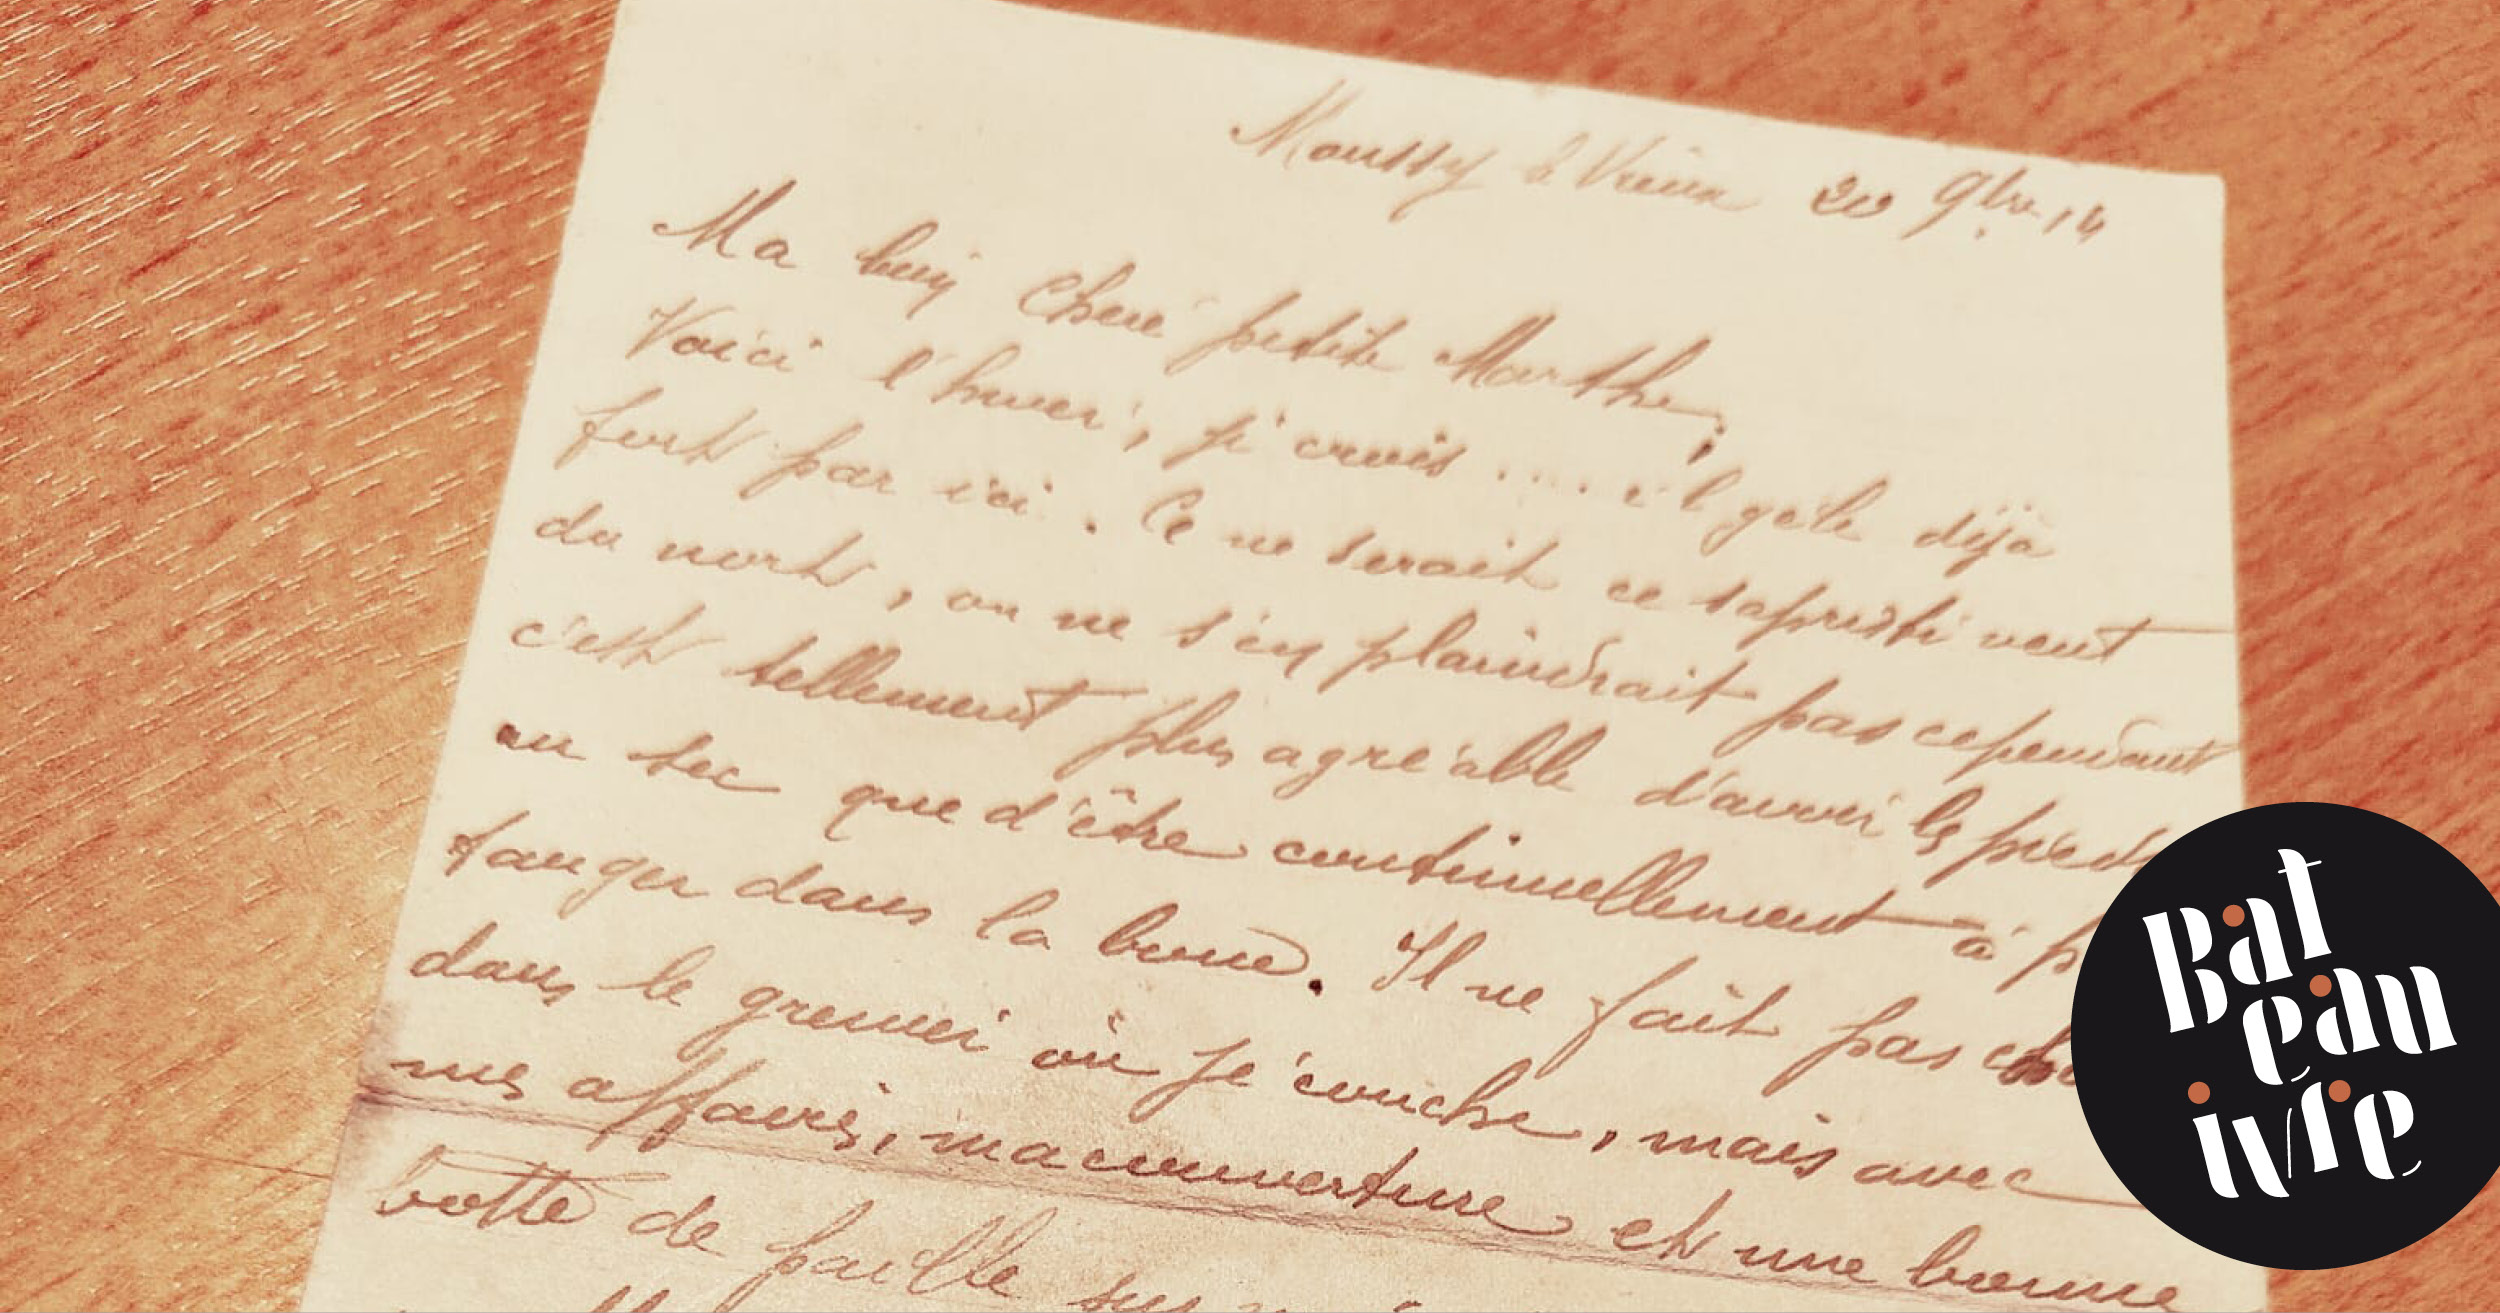 Moussy le Vieux 20 9bre 14
Ma bien cheré petite Marthe,
Voici l'hiver, je crois .... il gèle déjà
fort par ici. Ce ne serait ce sapristi vent
du nord, on ne s'en plaindrait pas cependant
c'est tellement plus agréable d'avoir les pieds
au sec que d'être continuellement à p
tauger dans la boue. Il ne fait pas
dans le grenier où je couche, mais avec
mes affaires, ma couverture et une bonne
botte de paille sur
Bateau
ivre